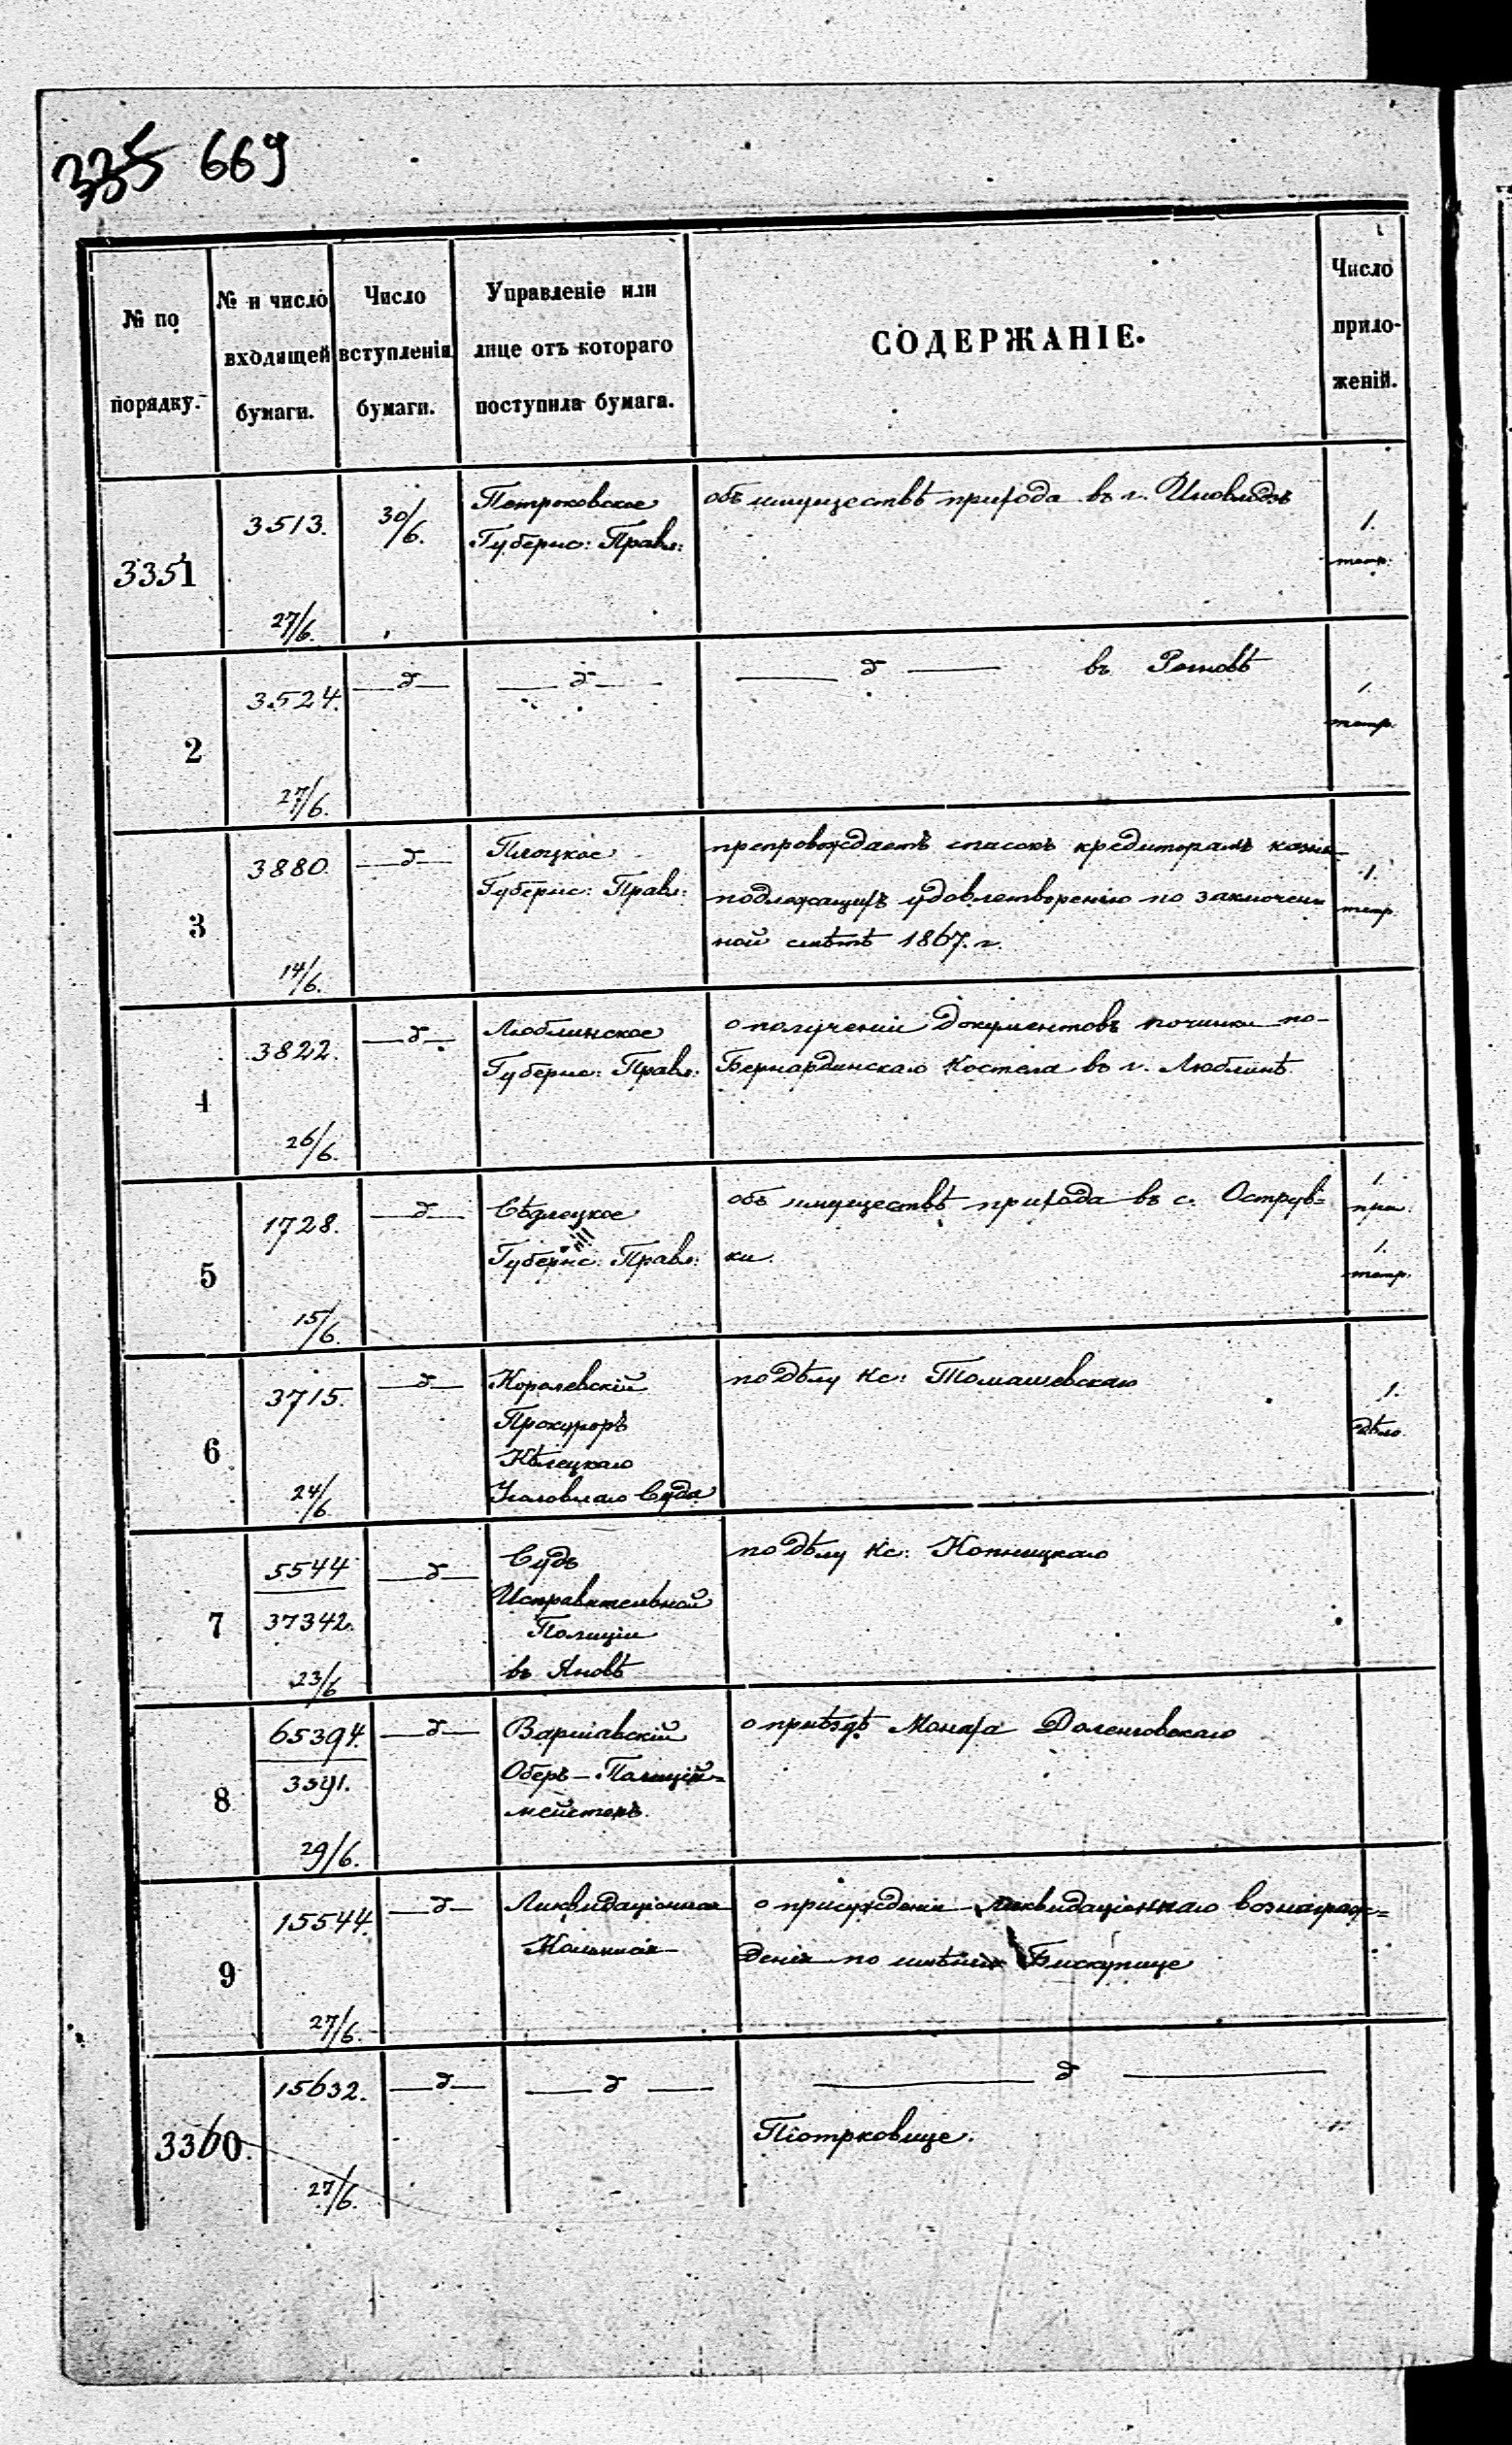 335 669
№ по порядку.
№ и число входящей бумаги.
Число вступленія бумаги.
Управленіе или лице отъ котораго поступила бумага.
СОДЕРЖАНІЕ.
Число приложеній.
3351
3513.
27/6.
30/6.
Петроковское
Губернс: Правл:
объ имуществѣ прихода въ г.
1.
тетр.
2
3524.
27/6.
—д—
—д—
—д— въ
1.
тетр.
3
3880.
14/6.
—д—
Плоцкое
Губернс: Правл:
препровождаетъ списокъ кредиторамъ казны
подлежащихъ удовлетворенію по заключен
ной смѣтѣ 1867. г.
1.
тетр.
4
3822.
26/6.
—д—
Люблинское
Губернс: Правл:
о полученіи документовъ починки по-
Бернардинскаго Костела въ г. Люблинѣ.
5
1728.
15/6.
—д—
Сѣдлецкое
Губернс: Правл:
объ имуществѣ прихода въ с. Острув=
ки.
1.
1.
тетр.
6
3715.
24/6
—д—
Королевскій
Прокуроръ
Кѣлецкаго
Уголовнаго Суда
по дѣлу Кс: Томашевскаго
1.
дѣло.
7
5544
37342.
23/6
—д—
Судъ
Исправительной
Полиціи
въ Яновѣ
по дѣлу Кс: Копницкаго
8
65394.
3591.
29/6.
—д—
Варшавскій
Оберъ-Полицій=
мейстеръ.
о пріѣздѣ Монаха Доленговскаго
9
15544.
27/6.
—д—
Ликвидаціонная
Комисія
о присужденіи ликвидаціоннаго вознаграж=
денія по имѣнію Бискупице
3360.
15632.
27/6.
—д—
—д—
—д—
Піотрковице.